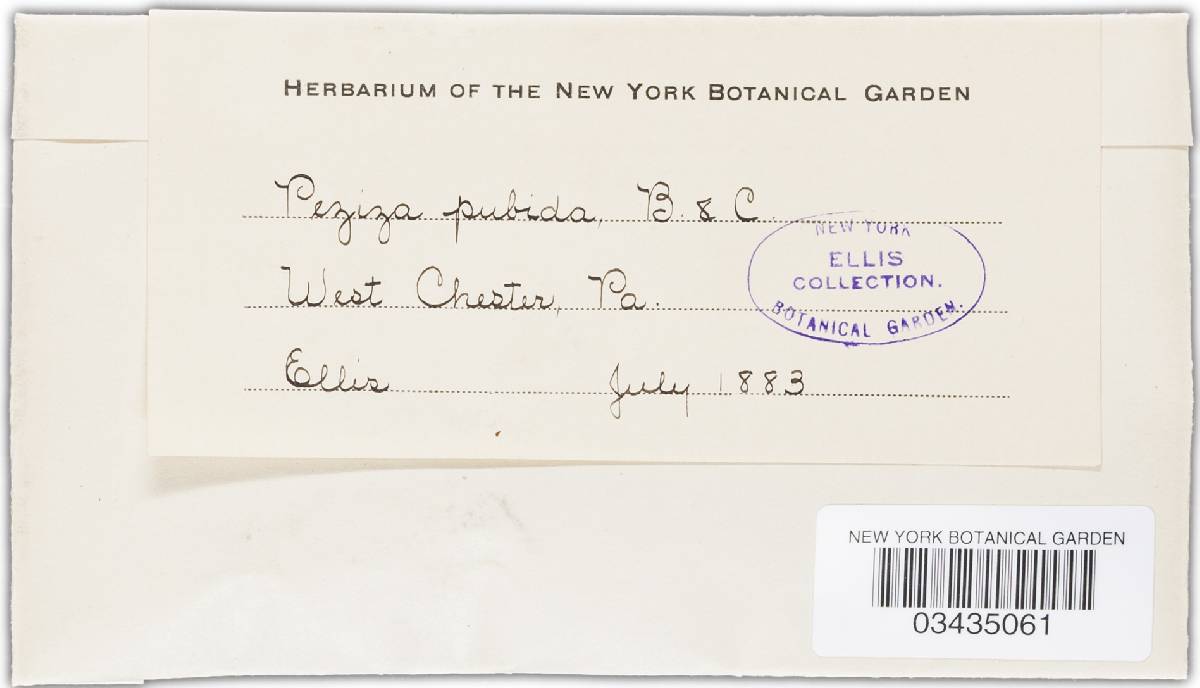 HERBARIUM OF THE NEW YORK BOTANICAL GARDEN
Peziza pubida, B. & C.
West Chester, Pa.
Ellis July 1883
NEW YORK
ELLIS
COLLECTION.
BOTANICAL GARDEN.
NEW YORK BOTANICAL GARDEN
03435061